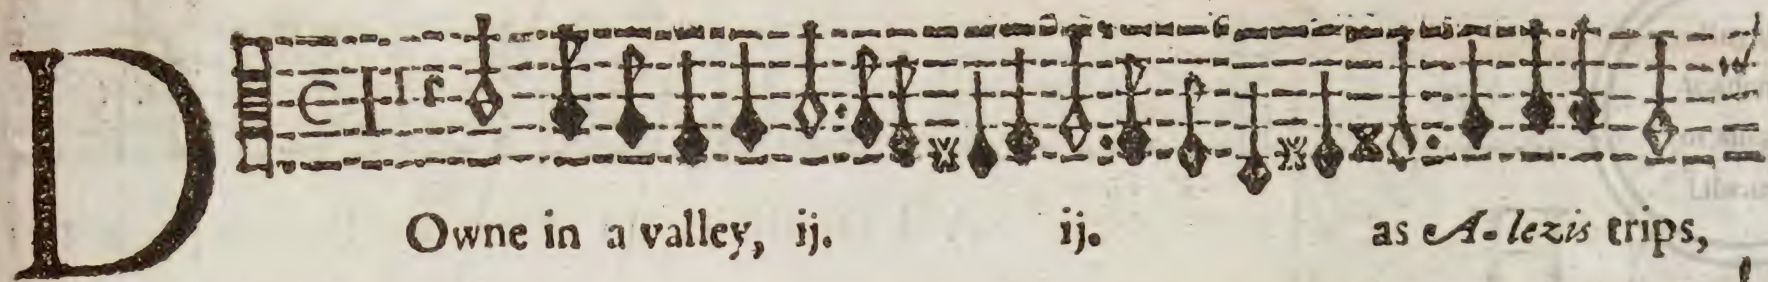 DOwne in a valley, ij. ij. as A-lezis trips,